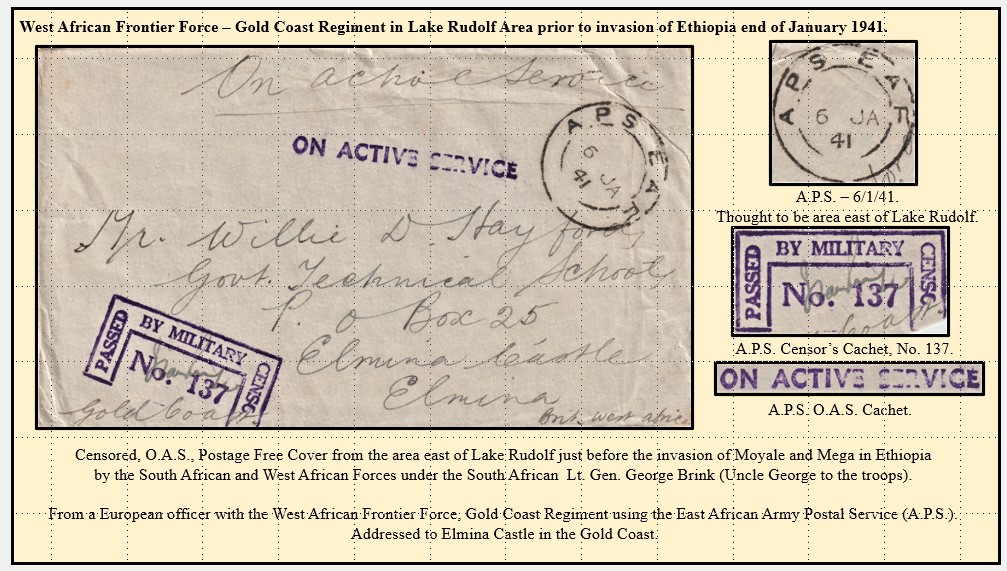 West African Frontier Force – Gold Coast Regiment in Lake Rudolf Area prior to invasion of Ethiopia end of January 1941.
On active Service
ON ACTIVE SERVICE
A P S E A F
6 JA
41
Mr. Willie D. Hayford,
Govt. Technical School
P. O Box 25
Elmina Castle
Elmina
Gold Coast.
Brit. West Africa
PASSED
BY MILITARY
CENSO
No: 137
A P S E A F
6 JA
41
A.P.S. – 6/1/41.
Thought to be area east of Lake Rudolf.
PASSED
BY MILITARY
CENSO
No: 137
A.P.S. Censor's Cachet, No. 137.
ON ACTIVE SERVICE
A.P.S. O.A.S. Cachet.
Censored, O.A.S., Postage Free Cover from the area east of Lake Rudolf just before the invasion of Moyale and Mega in Ethiopia
by the South African and West African Forces under the South African Lt. Gen. George Brink (Uncle George to the troops).
From a European officer with the West African Frontier Force, Gold Coast Regiment using the East African Army Postal Service (A.P.S.).
Addressed to Elmina Castle in the Gold Coast.